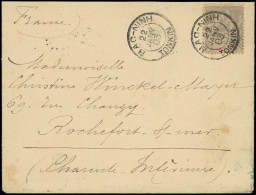 (France)
BAC-NINH
22
TONKIN
BAC-NINH
22
TONKIN
Mademoiselle
Christine Winckel-Mayer
69, rue Changy
Rochefort s/mer
(Charente Inférieure)